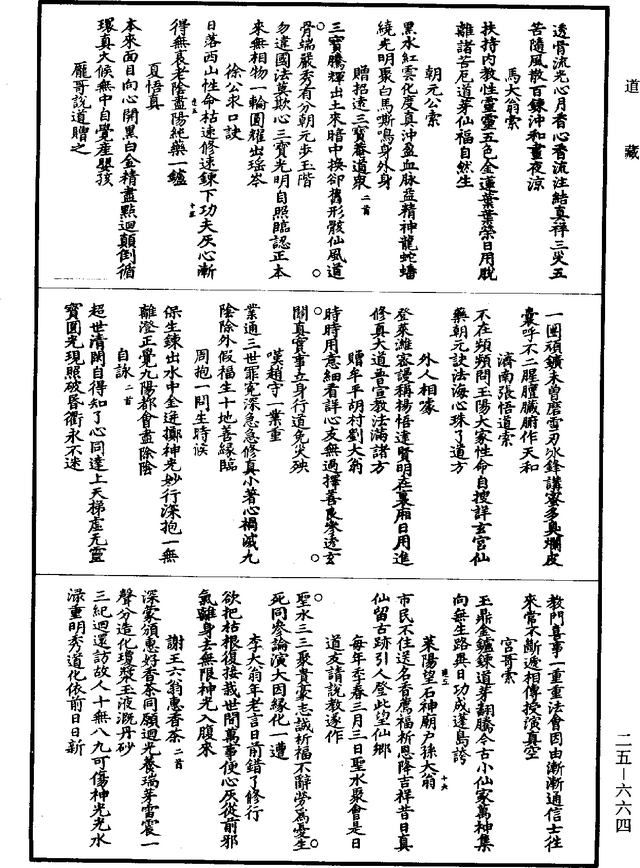 道藏
透骨流光心月看心看流注結真祥三災五
苦隨風散百鍊沖和晝夜涼
馬大翁索
扶持内教性靈靈五色金蓮葉葉榮日用脫
離諸苦厄道芽仙福自然生
朝元公索
黑水紅雲化度真沖盈血脉益精神龍蛇蟠
繞光明聚白馬嘶鳴身外身
贈招遠三寶菴道衆二首
三寶騰輝出土來暗中換卻舊形骸仙風道
骨端嚴秀有分朝元步玉階
勿違國法莫欺心三寶光明自照臨認正本
來無相物一輪圓耀出瑶岑
徐公求口訣
日落西山性命枯速修速鍊下功夫灰心漸
得無衰老陰盡陽純藥一鑪
夏悟真
本來面目向心開黑白金精盡點迴顛倒循
環真火候無中自覺産嬰孩
龐哥說道贈之
一團頑鑛未曾磨雪刃冰鋒講察多臭爛皮
囊呼不二腥膻臟腑作天和
濟南張悟道索
不在頻頻問王陽大家性命自搜詳玄宮仙
藥朝元訣法海心珠了道方
外人相豪
登萊濰密謾稱揚悟達賢明在裏廂日用進
修真大道普宣教法滿諸方
贈牟平胡村劉大翁
時時用意細看詳心友無過擇善良參透玄
關真實事立身行道免災殃
嘆趙守一業重
業通三世罪寃深急急修真小著心禍滅九
陰除外假福生十地善緣臨
周抱一問生時候
保生鍊出水中金迸擲神光妙行深抱一無
離澄正覺九陽都會盡除陰
自詠二首
超世清閑自得知了心同達上天梯虛无靈
寶圓光現照破昏衢永不迷
教門喜事一重重法會因由漸漸通信士往
來常不斷遞相傳授演真空
宮哥索
玉鼎金鑪鍊道芽翻騰今古小仙家萬神集
向無生路與日功成蓬島誇
萊陽望石神廟戶孫大翁
市民不住送名香薦福祈恩降吉祥昔日真
仙留古跡引人登此望仙鄉
每年季春三月三日聖水聚會是日
道友請說教遂作
聖水三三聚貴豪志誠祈福不辭勞爲憂生
死同參論演大因緣化一遭
李大翁年老言日前錯了修行
欲把枯根復接栽世間萬事便心灰從前邪
氣離身去無限神光入腹來
謝王六翁惠香茶二首
深蒙頒惠好香茶同願迴光養瑞芽雷震一
聲分造化瓊漿玉液溉丹砂
三紀迴還訪故人十無八九可傷神光光水
渌重明秀道化依前日日新
二五-六六四